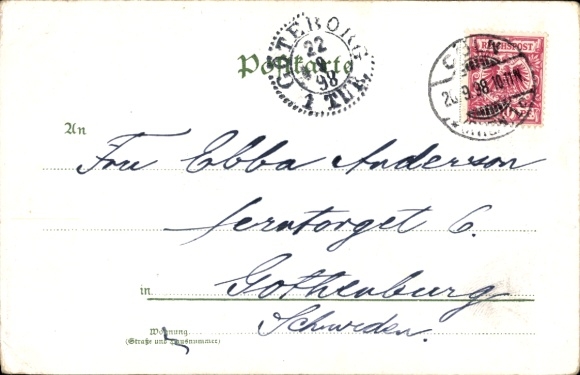 GÖTEBORG
22
9
98
1 TUR
Postkarte
REICHSPOST
20.9.98.10-11N
An
Frau Ebba Anderson
Jerntorget 6.
in Gothenburg
Schweden.
Wohnung
(Straße und Hausnummer)